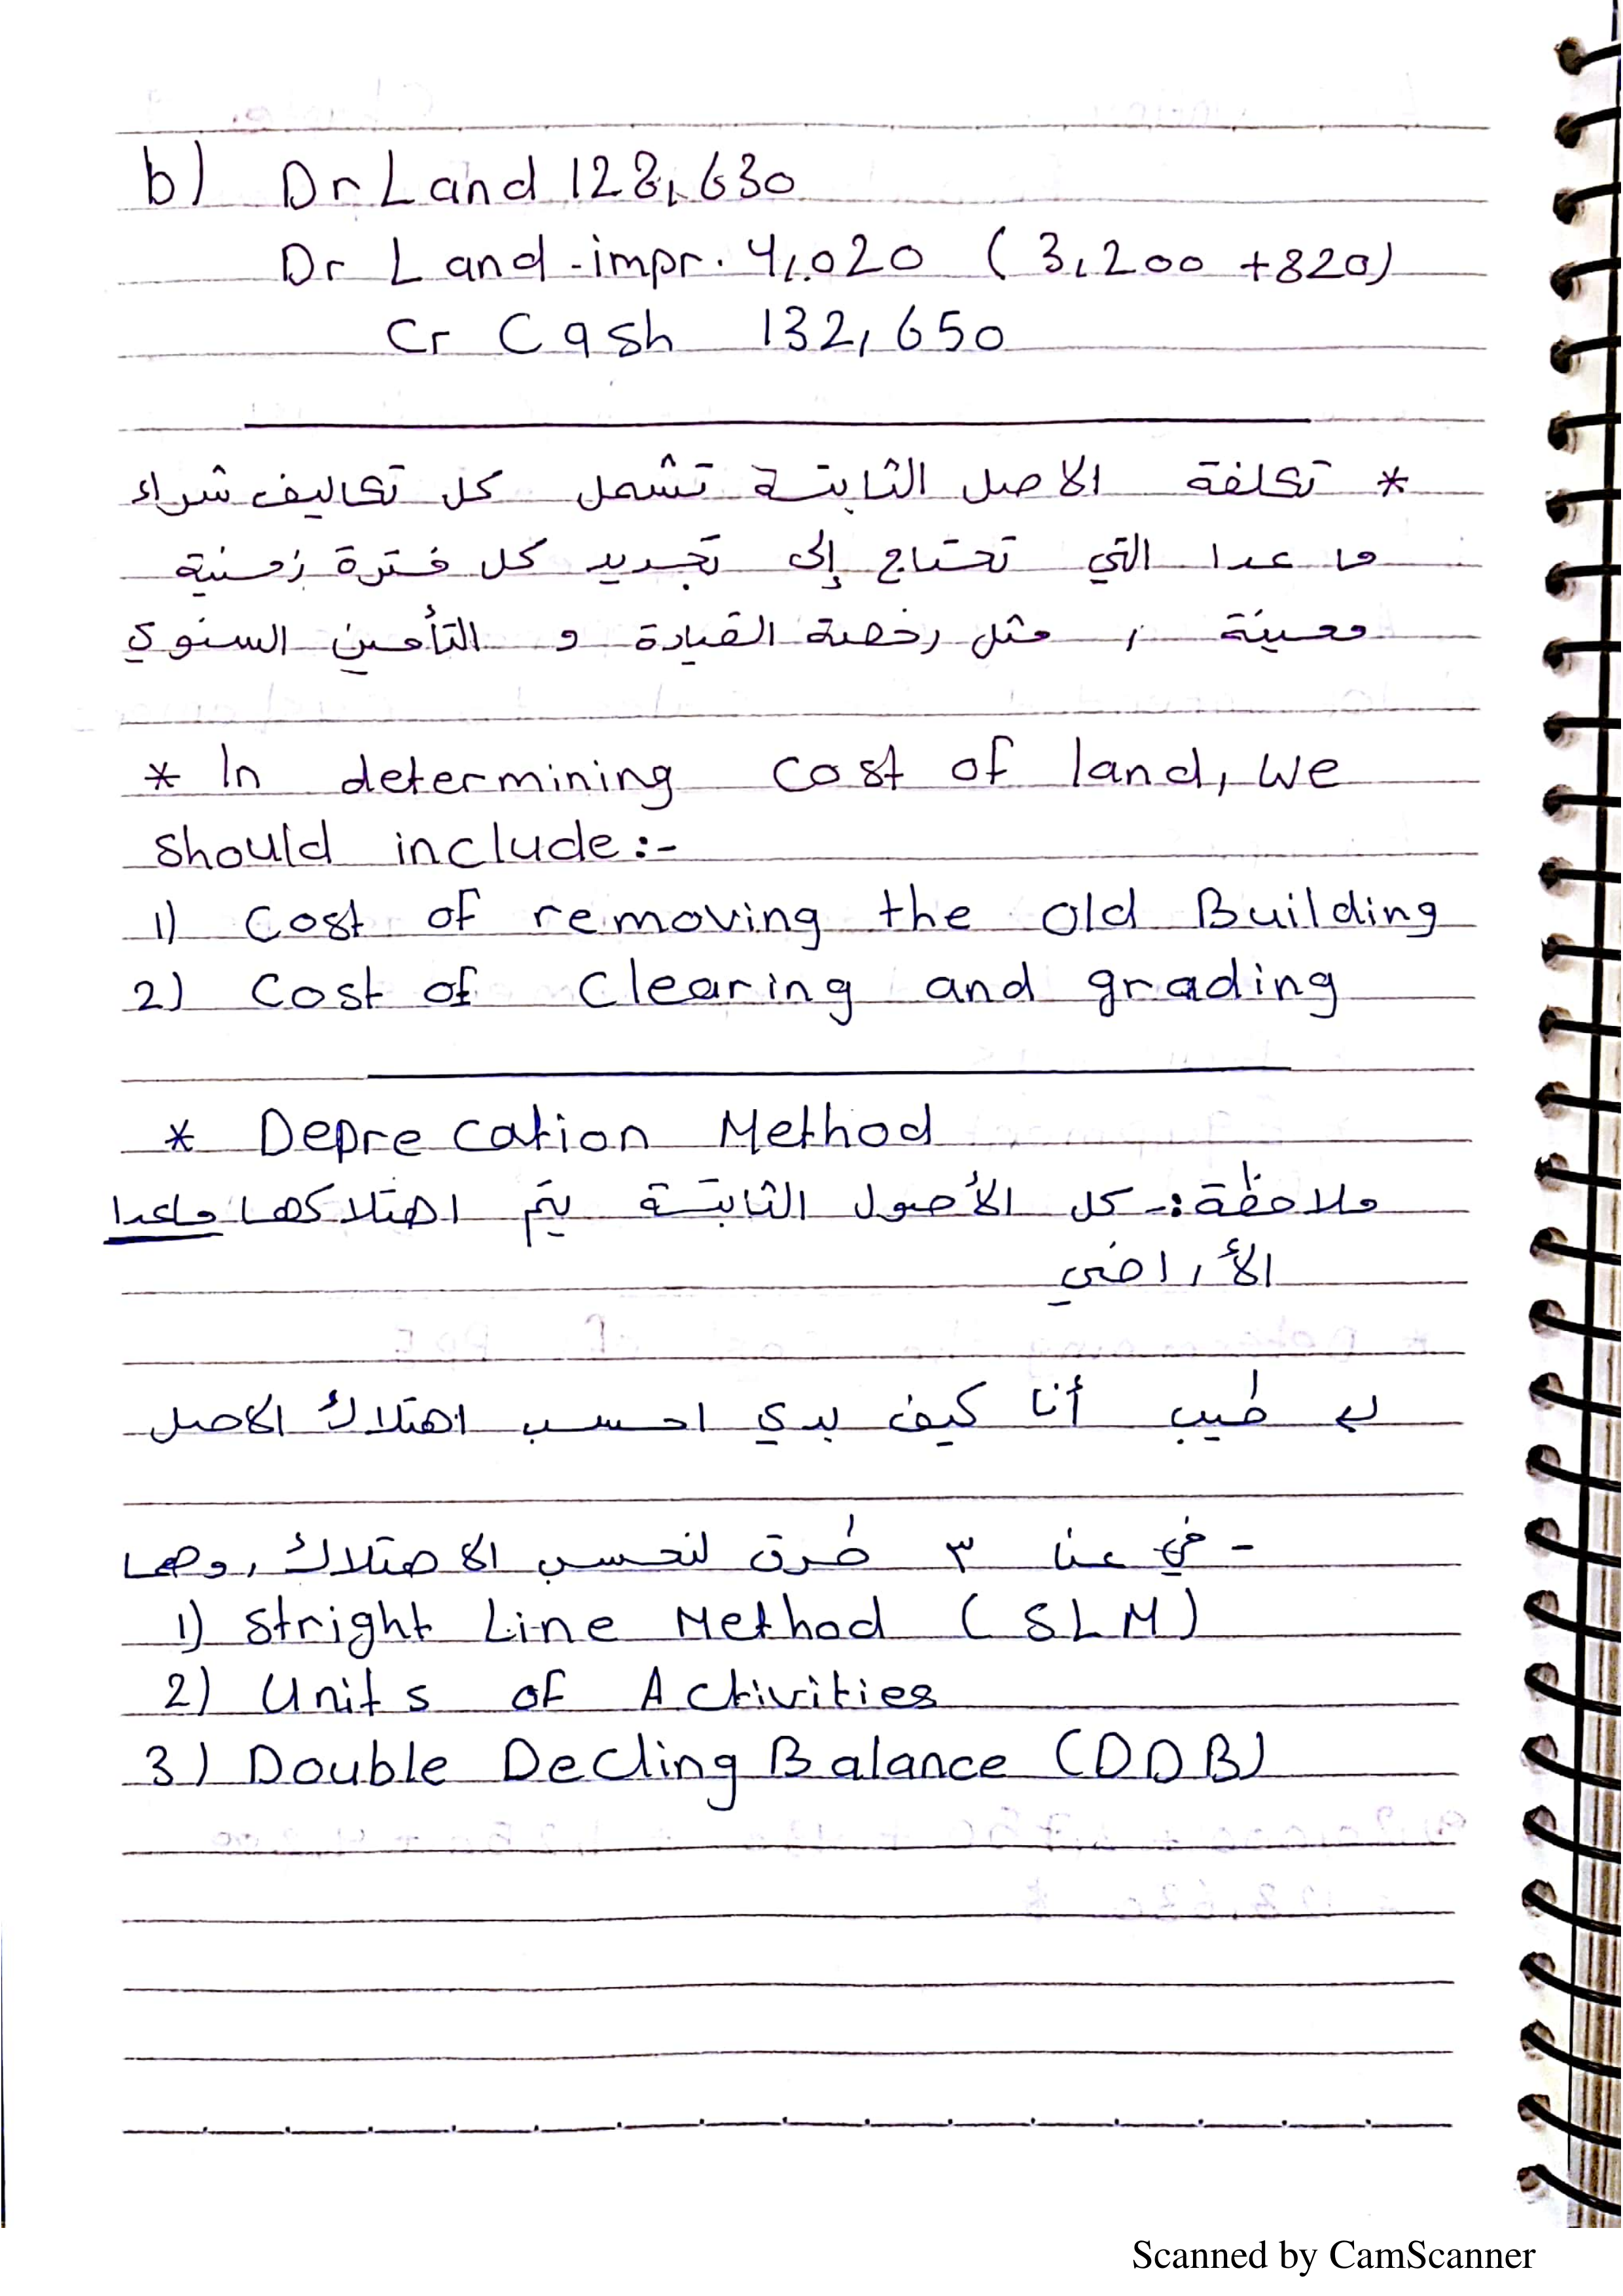 b) Dr Land 128,630
Dr Land-impr. 4,020 (3,200 +820)
Cr Cash 132,650
* تكلفة الاصل الثابتة تشمل كل تكاليف شراء
ما عدا التي تحتاج إلى تجديد كل فترة زمنية
معينة , مثل رخصة القيادة و التأمين السنوي
* In determining cost of land, we
should include:-
1) Cost of removing the Old Building
2) Cost of Clearing and grading
* Deprecation Method
ملاحظة:- كل الأصول الثابتة يتم اهتلاكها ماعدا
الأراضي
طيب أنا كيف بدي احسب اهتلاك الاصل
- في عنا ٣ طرق لنحسب الاهتلاك, وهما
1) Stright Line Method (SLM)
2) Units of Activities
3) Double Decling Balance (DDB)
Scanned by CamScanner